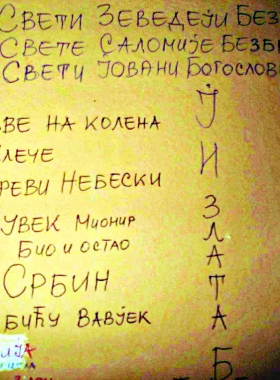 Свети Зеведеји Без
Свете Саломије Безб
Свети Јовани Богослов
ве на колена
лече
реви Небески
увек Мионир
Био и остао
Србин
бићу Вавјек
Ј
И
З
Л
А
Т
А
Б